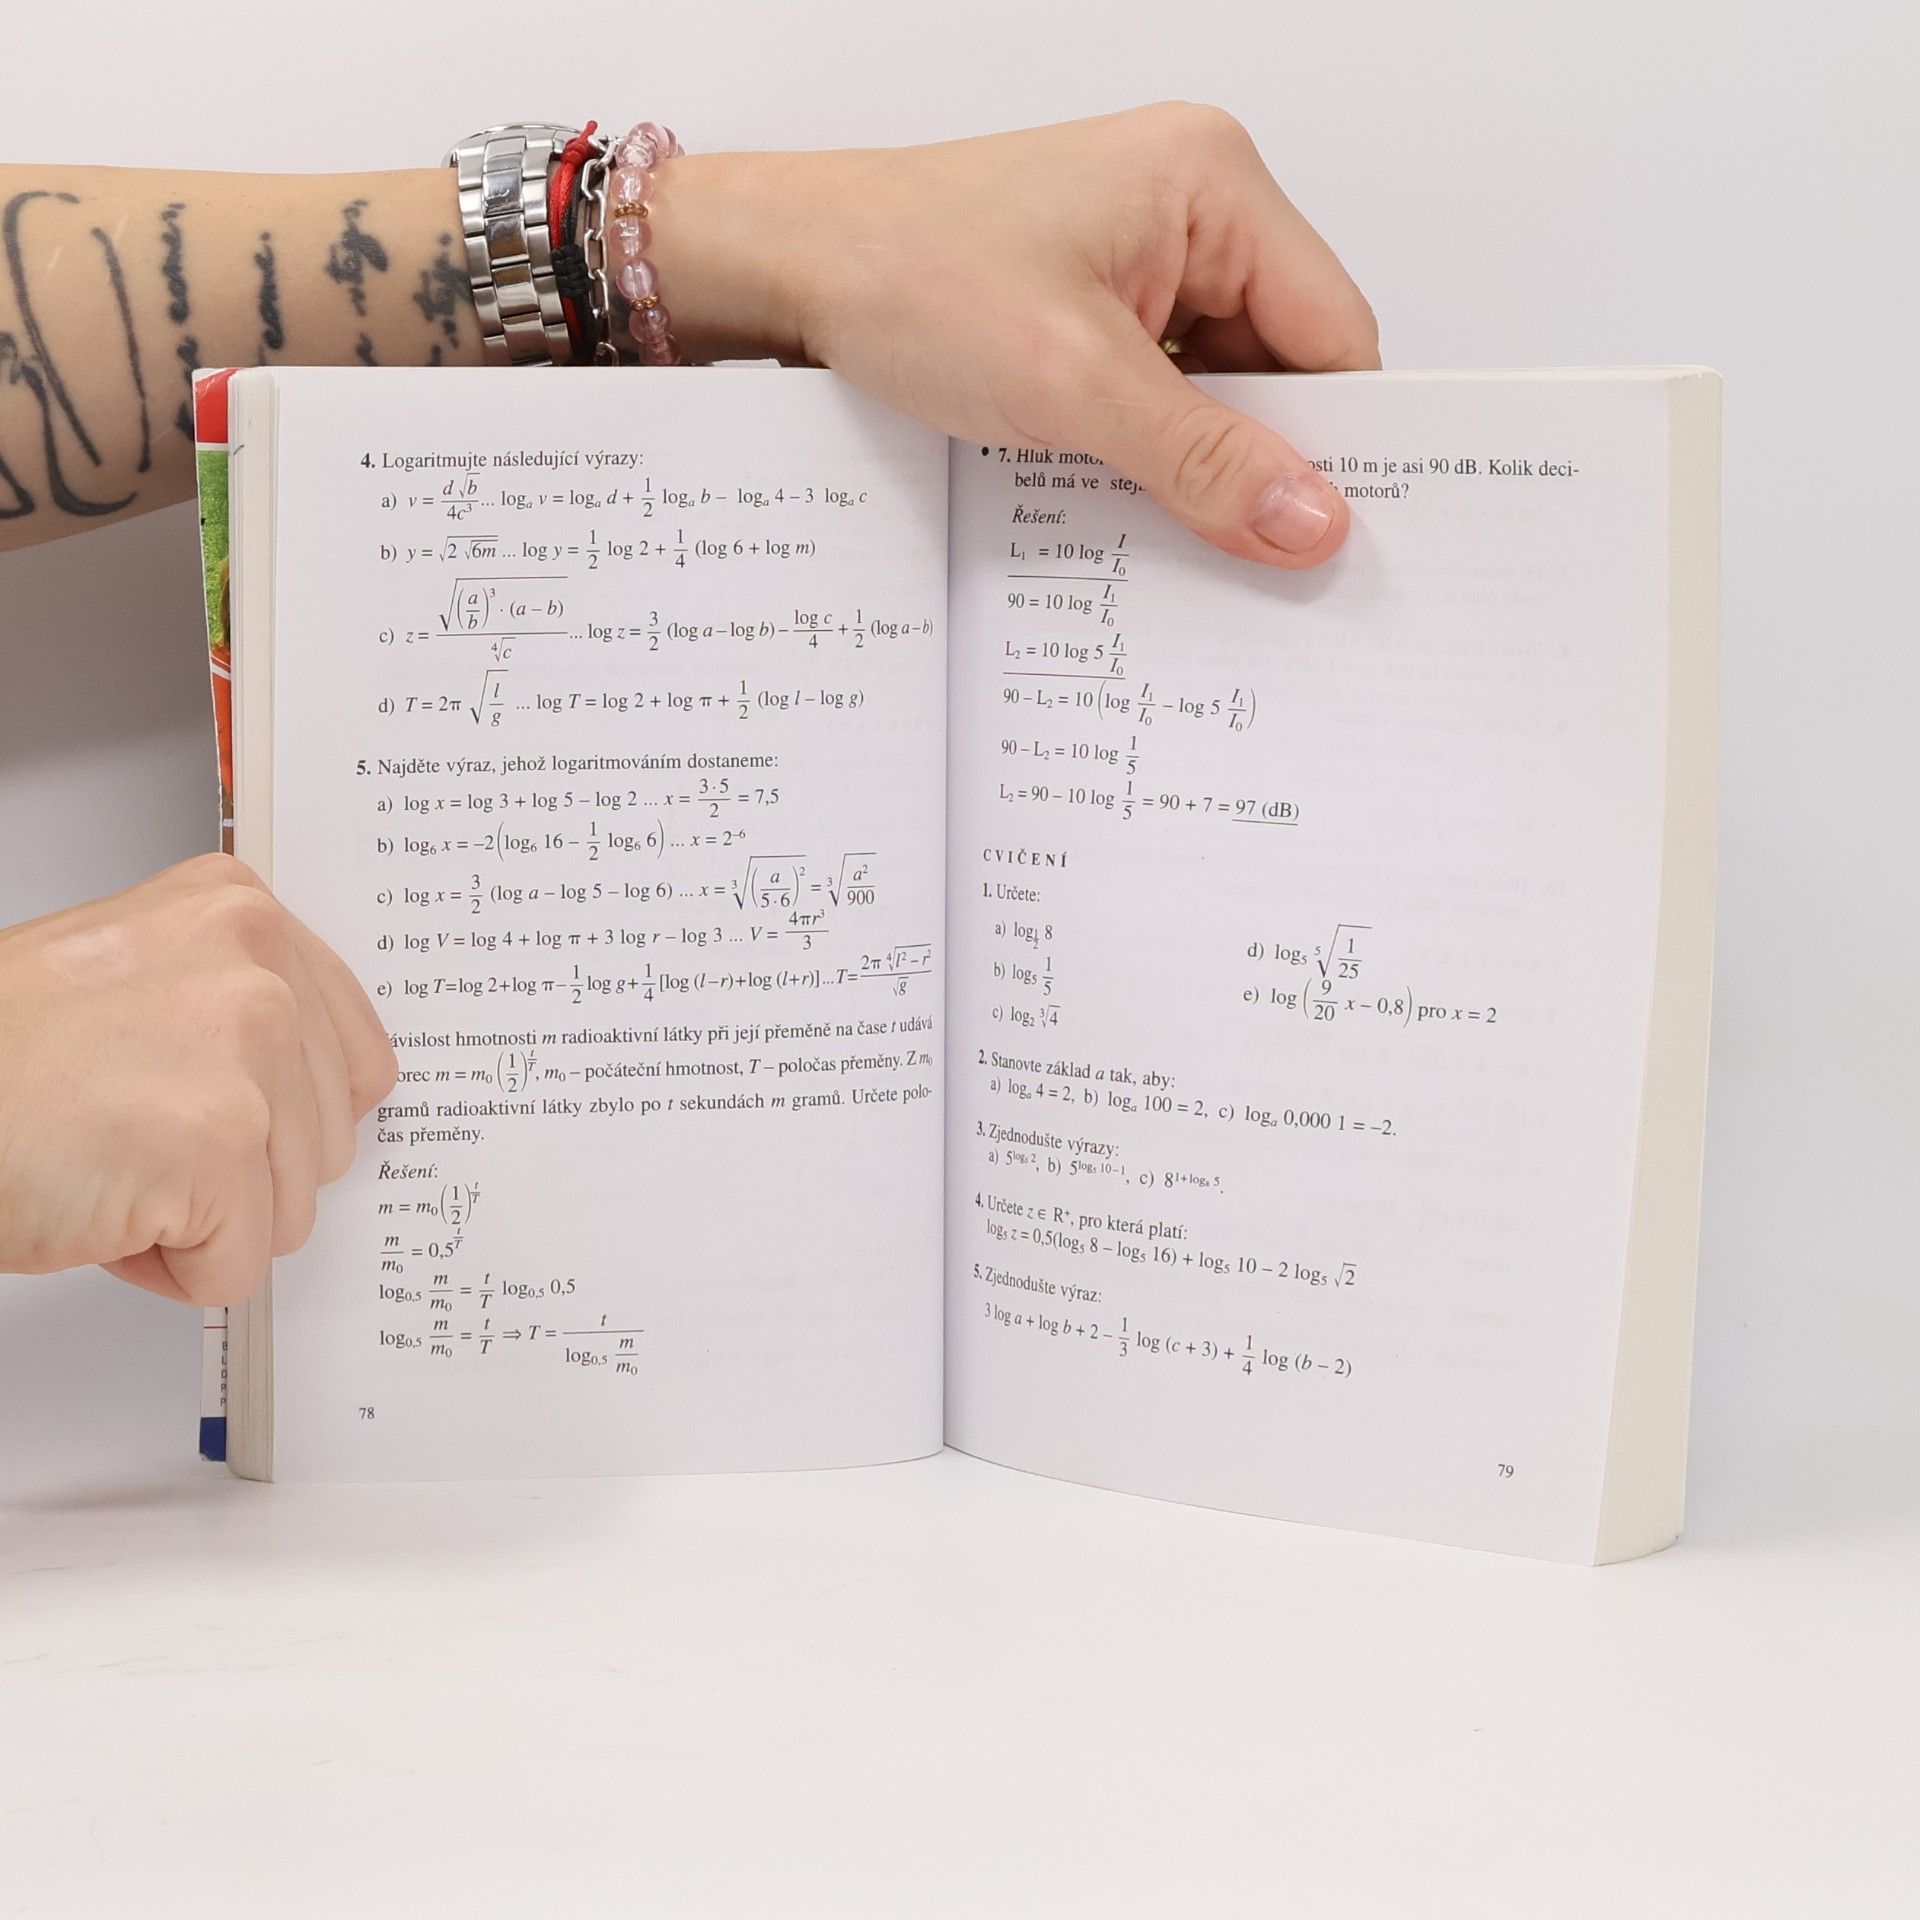 4. Logaritmujte následující výrazy:
a) v = d √b / 4c³ ... logₐ v = logₐ d + 1/2 logₐ b – logₐ 4 – 3 logₐ c
b) y = √(2 √(6m)) ... log y = 1/2 log 2 + 1/4 (log 6 + log m)
c) z = √((a/b)³ · (a – b)) / ⁴√c ... log z = 3/2 (log a – log b) – log c / 4 + 1/2 (log a – b)
d) T = 2π √(l/g) ... log T = log 2 + log π + 1/2 (log l – log g)
5. Najděte výraz, jehož logaritmováním dostaneme:
a) log x = log 3 + log 5 – log 2 ... x = 3·5 / 2 = 7,5
b) log₆ x = –2 (log₆ 16 – 1/2 log₆ 6) ... x = 2⁻⁶
c) log x = 3/2 (log a – log 5 – log 6) ... x = ³√((a / 5·6)²) = ³√(a² / 900)
d) log V = log 4 + log π + 3 log r – log 3 ... V = 4πr³ / 3
e) log T = log 2 + log π – 1/2 log g + 1/4 [log (l–r) + log (l+r)] ... T = 2π ⁴√(l² – r²) / √g
ávislost hmotnosti m radioaktivní látky při její přeměně na čase t udává
orec m = m₀ (1/2)^(t/T), m₀ – počáteční hmotnost, T – poločas přeměny. Z m₀
gramů radioaktivní látky zbylo po t sekundách m gramů. Určete polo-
čas přeměny.
Řešení:
m = m₀ (1/2)^(t/T)
m/m₀ = 0,5^(t/T)
log₀,₅ m/m₀ = t/T log₀,₅ 0,5
log₀,₅ m/m₀ = t/T ⇒ T = t / (log₀,₅ m/m₀)
78
• 7. Hluk osti 10 m je asi 90 dB. Kolik deci-
belů má ve motorů?
Řešení:
L₁ = 10 log I/I₀
90 = 10 log I₁/I₀
L₂ = 10 log 5 I₁/I₀
90 – L₂ = 10 (log I₁/I₀ – log 5 I₁/I₀)
90 – L₂ = 10 log 1/5
L₂ = 90 – 10 log 1/5 = 90 + 7 = 97 (dB)
CVIČENÍ
1. Určete:
a) log½ 8
b) log₅ 1/5
c) log₂ ³√4
d) log₅ ⁵√(1/25)
e) log (9/20 x – 0,8) pro x = 2
2. Stanovte základ a tak, aby:
a) logₐ 4 = 2, b) logₐ 100 = 2, c) logₐ 0,000 1 = –2.
3. Zjednodušte výrazy:
a) 5^(log₅ 2), b) 5^(log₅ 10–1), c) 8^(1+log₈ 5).
4. Určete z ∈ R⁺, pro která platí:
log₅ z = 0,5(log₅ 8 – log₅ 16) + log₅ 10 – 2 log₅ √2
5. Zjednodušte výraz:
3 log a + log b + 2 – 1/3 log (c + 3) + 1/4 log (b – 2)
79